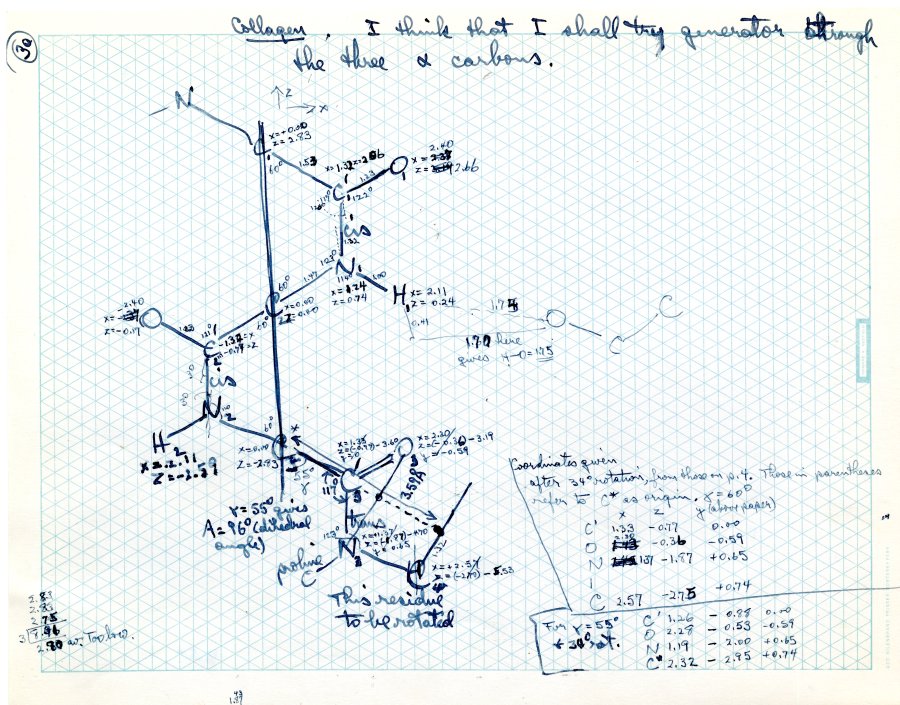 3a
Collagen. I think that I shall try generator through
the three α carbons.
↑z
→x
N
x=+0.00
z=2.83
C
60°
1.53
x=1.32
2.40
O
z=2.66
1.23
C'
122°
cis
1.32
123°
N
60°
1.47
114°
1.00
x=1.24
z=0.74
H
x=2.11
z=0.24
x=0.00
z=0.00
0.41
O
C
C
1.70 here
gives H-O=1.75
-2.40
x=
z=-0.17
O
1.23
60°
C'
-1.32=x
-0.77=z
cis
N
H
x=-2.11
z=-2.59
60°
x=0.00
z=-2.83
55°
γ
117°
x=1.33
z=(-0.77)-3.60
y=0
O
x=2.30
z=(-0.36)-3.19
y=-0.59
3.59A
C'
γ=55° gives
A=96° (dihedral
angle)
trans
123°
N
y=0.65
1.32
proline
C
x=+2.57
z=(-2.70)-5.53
C
This residue
to be rotated
Coordinates given
after 34° rotation, from those on p.4. Those in parentheses
refer to C* as origin. γ=60°
x z y (above paper)
C' 1.33 -0.77 0.00
O 2.30 -0.36 -0.59
N 1.37 -1.87 +0.65
C 2.57 -2.75 +0.74
For γ=55°
+ 34° rot.
C' 1.26 -0.88 0.00
O 2.28 -0.53 -0.59
N 1.19 -2.00 +0.65
C* 2.32 -2.95 +0.74
2.83
2.83
2.75
3
2.80 av. Too low.